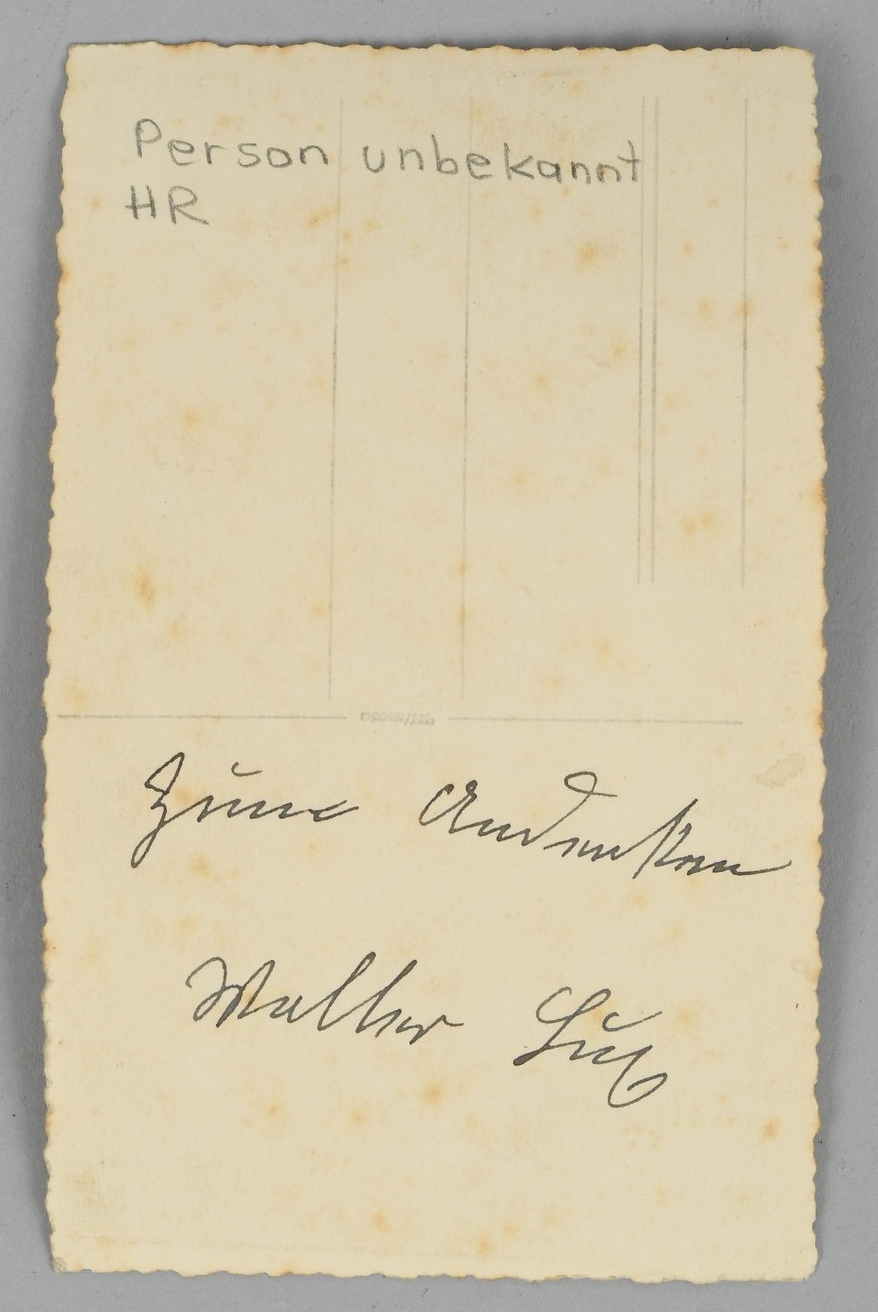 Person unbekannt
HR
Zum Andenken
Walter